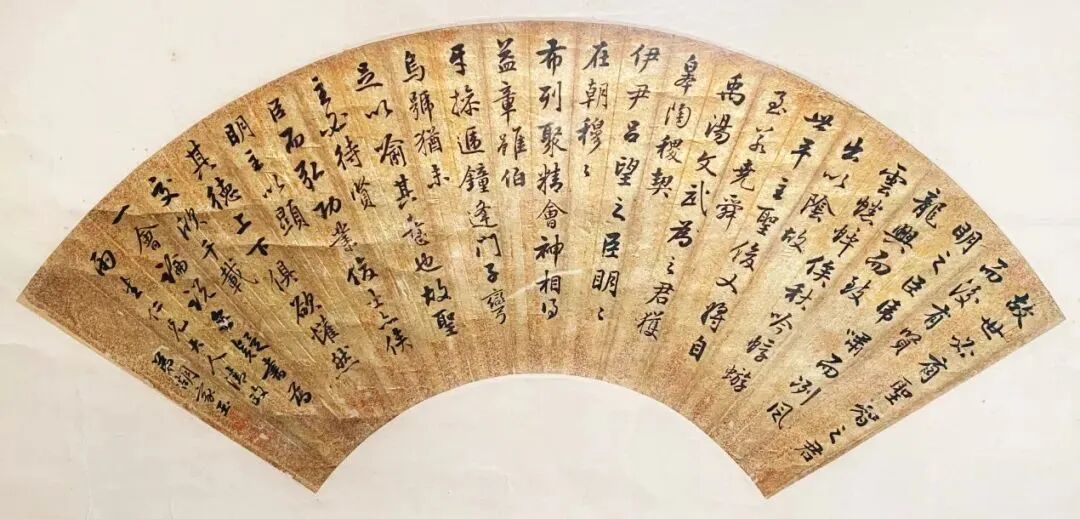 故世必有聖智之君
而後有賢
明之臣虎嘯而冽風
龍興而致
雲蟋蟀俟秋吟蜉蝣
出以陰故
世平主聖俊乂將自
至若堯舜
禹湯文武為之君獲
皋陶稷契
伊尹呂望之臣明明
在朝穆〻
布列聚精會神相得
益章雖伯
牙操遞鐘逢門子彎
烏號猶未
足以喻其意也故聖
主必待賢
臣而弘功業俊士亦俟
明主以顯
其德上下俱欲懽然
交欣千載
一會論說無疑書為
雨生仁兄大人清政
弟胡家玉